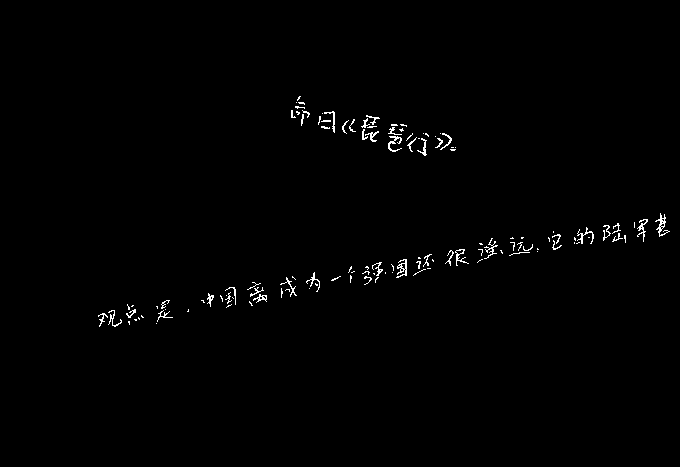 命曰《琵琶行》。
观点是，中国离成为一个强国还很遥远，它的陆军甚